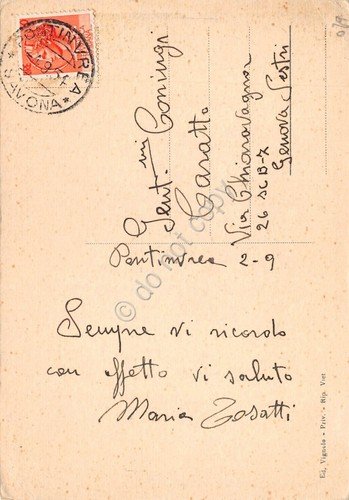 PONTINVREA
* SAVONA *
Gent.mi Coniugi
Casatta
Via Chiaravagna
26 sc B-7
Genova Sestri
Pontinvrea 2-9
Sempre vi ricordo
con affetto vi saluto
Maria Tosatti
Ed. Vignolo - Priv. - Rip. Viet
do not copy
079